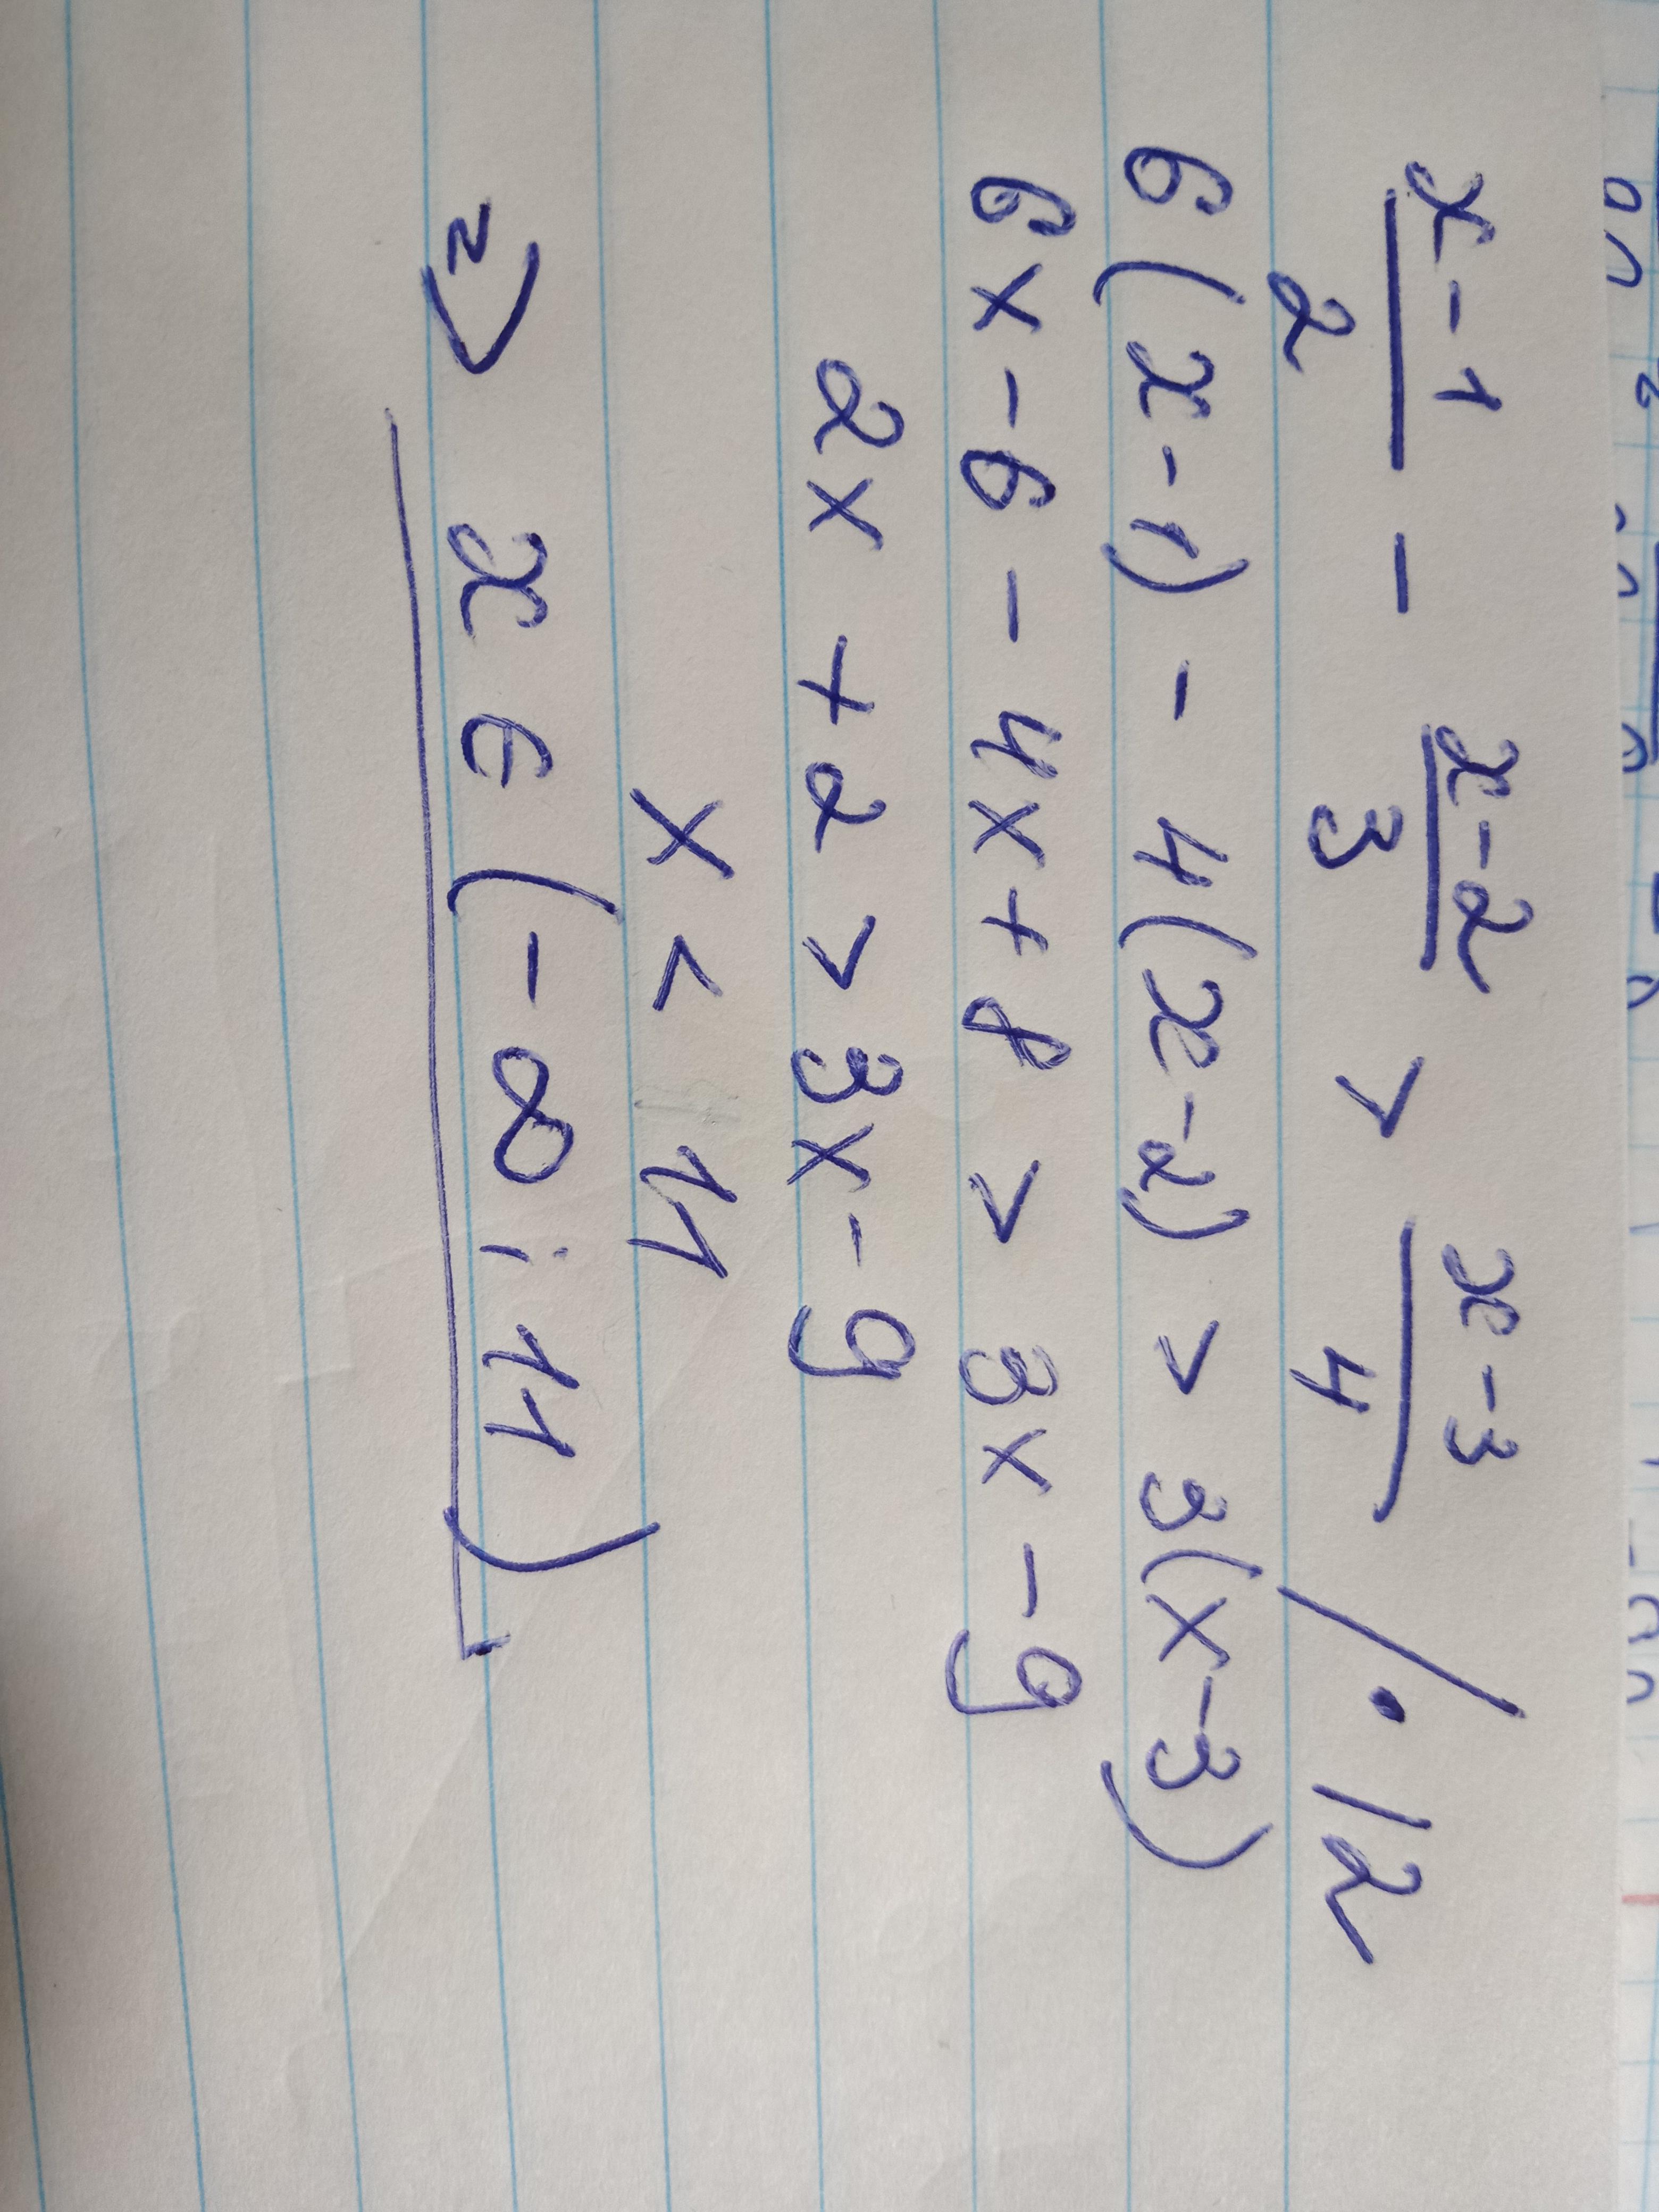 x-1/2 - x-2/3 > x-3/4 / · 12
6(x-1) - 4(x-2) > 3(x-3)
6x - 6 - 4x + 8 > 3x - 9
2x + 2 > 3x - 9
x < 11
=> x ∈ (-∞; 11)